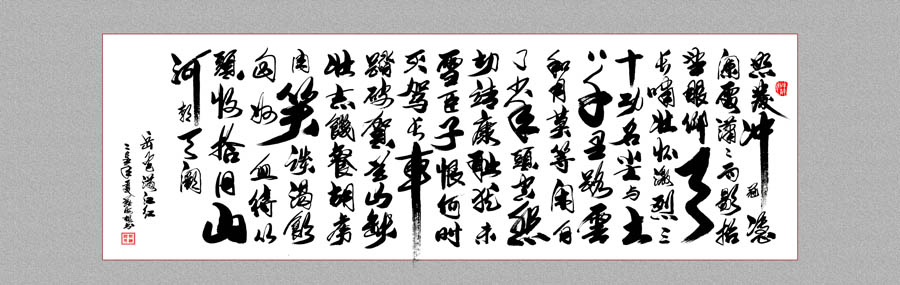 怒发冲冠凭
阑處潇潇雨歇抬
望眼仰天
长啸壮怀激烈三
十功名尘与土
八千里路雲
和月莫等闲白
了少年頭空悲
切靖康耻犹未
雪臣子恨何时
灭驾长車
踏破贺兰山缺
壮志饑餐胡虏
肉笑谈渴飲
匈奴血待从
頭收拾旧山
河朝天阙
岳飞满江红